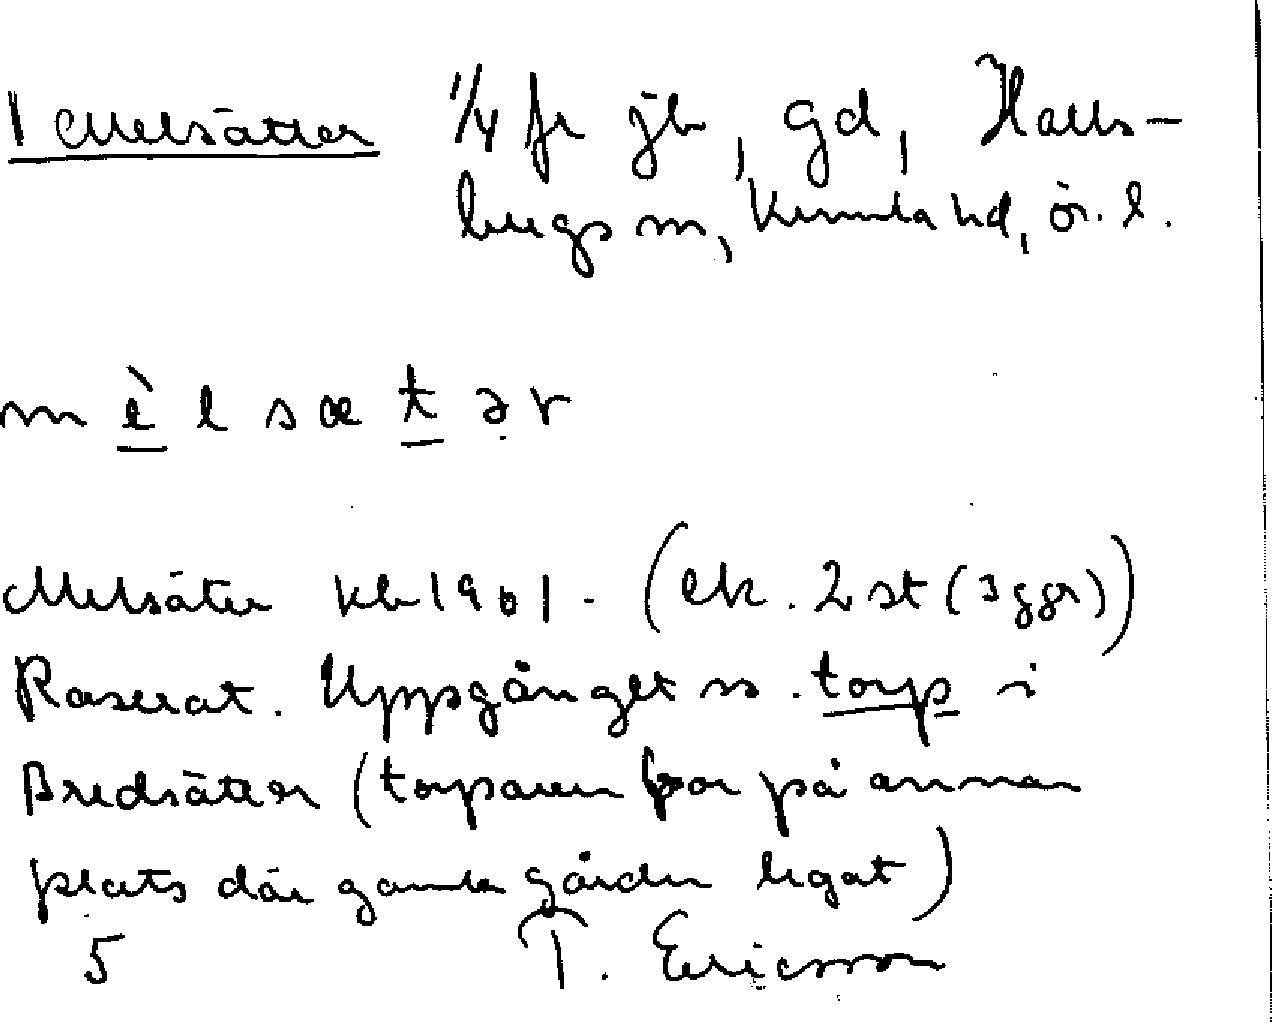 1 Melsätter 1/4 fr jb, gd, Halls-
bergs sn, Kumla hd, ör. l.
m è l s æ t ə r
Melsäter kb 1901. (ek. 2 st (3 ggr))
Raserat. Uppgånget ss. torp i
Bredsätter (torparen bor på annan
plats där gamla gården legat)
5 T. Ericsson